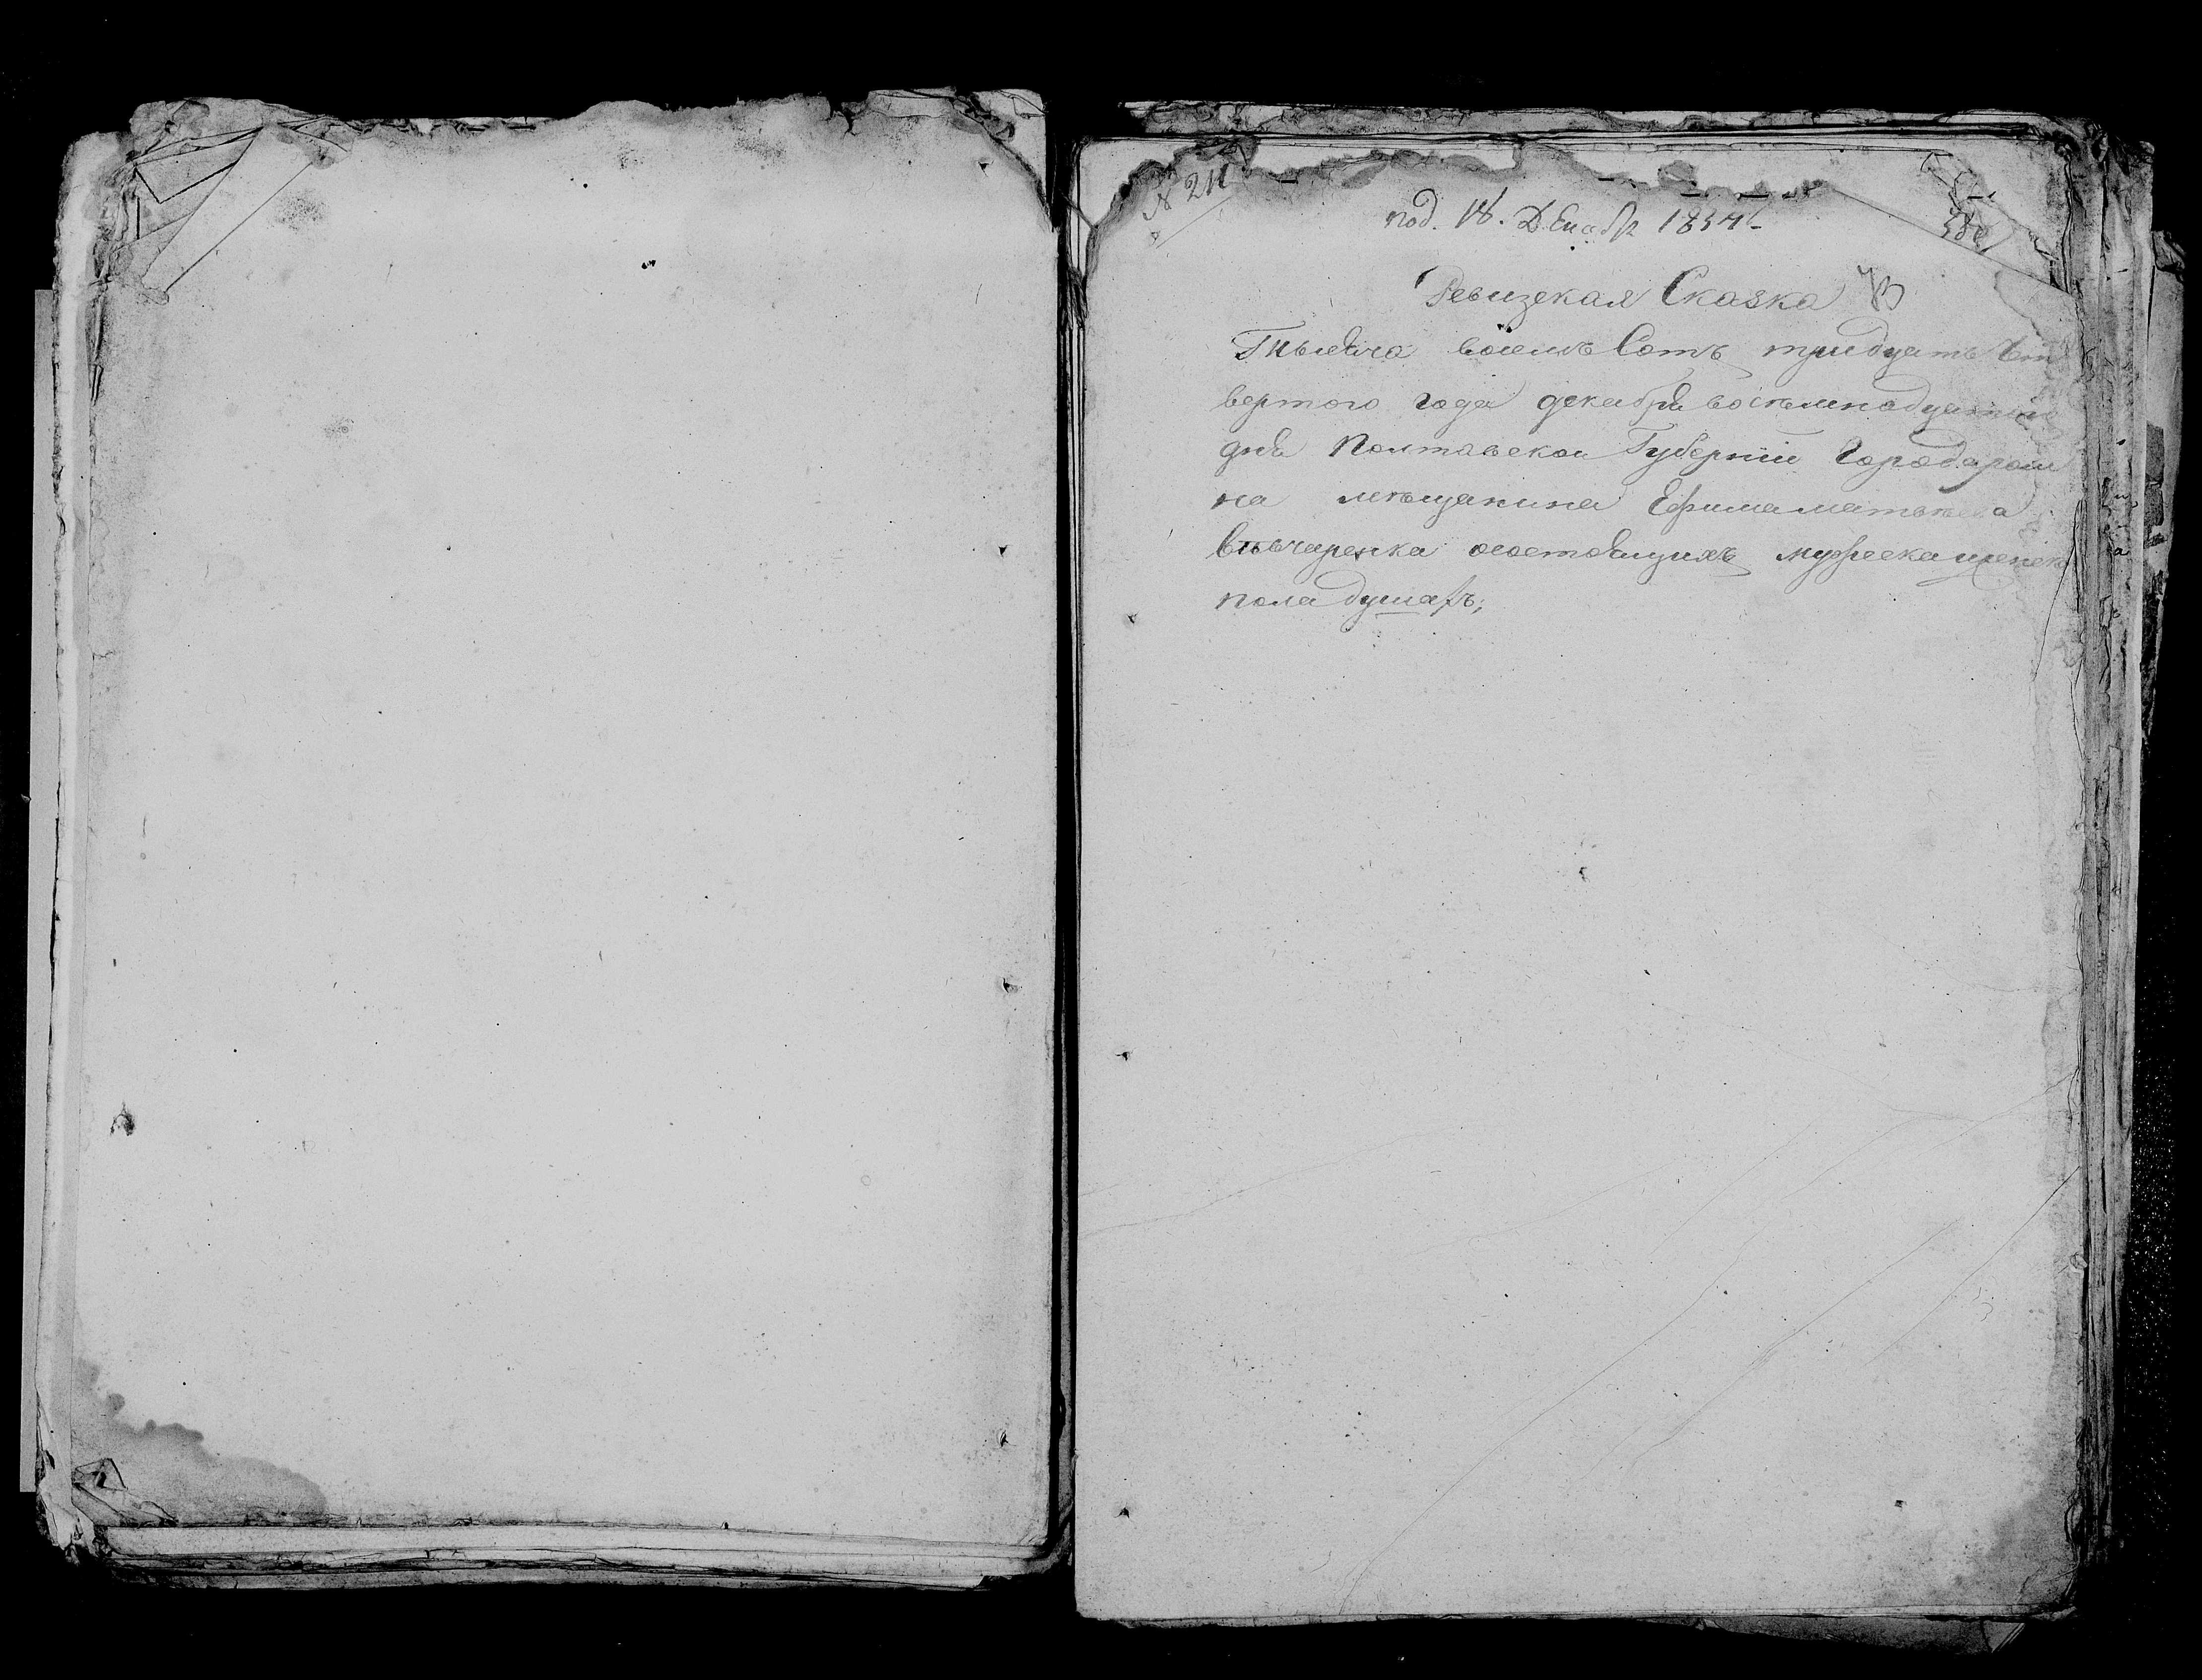 N 211
под. 18. Декабр 1834
Ревизская Сказка
Тысяча восемъ Сотъ тридцать Чет
вертого года декабря восемнадцатого
дня Полтавской Губернии Города ром
на мещанина Ефима Матвеева
Вивчаренка осостоящихъ мужеска и женск
пола душахъ;